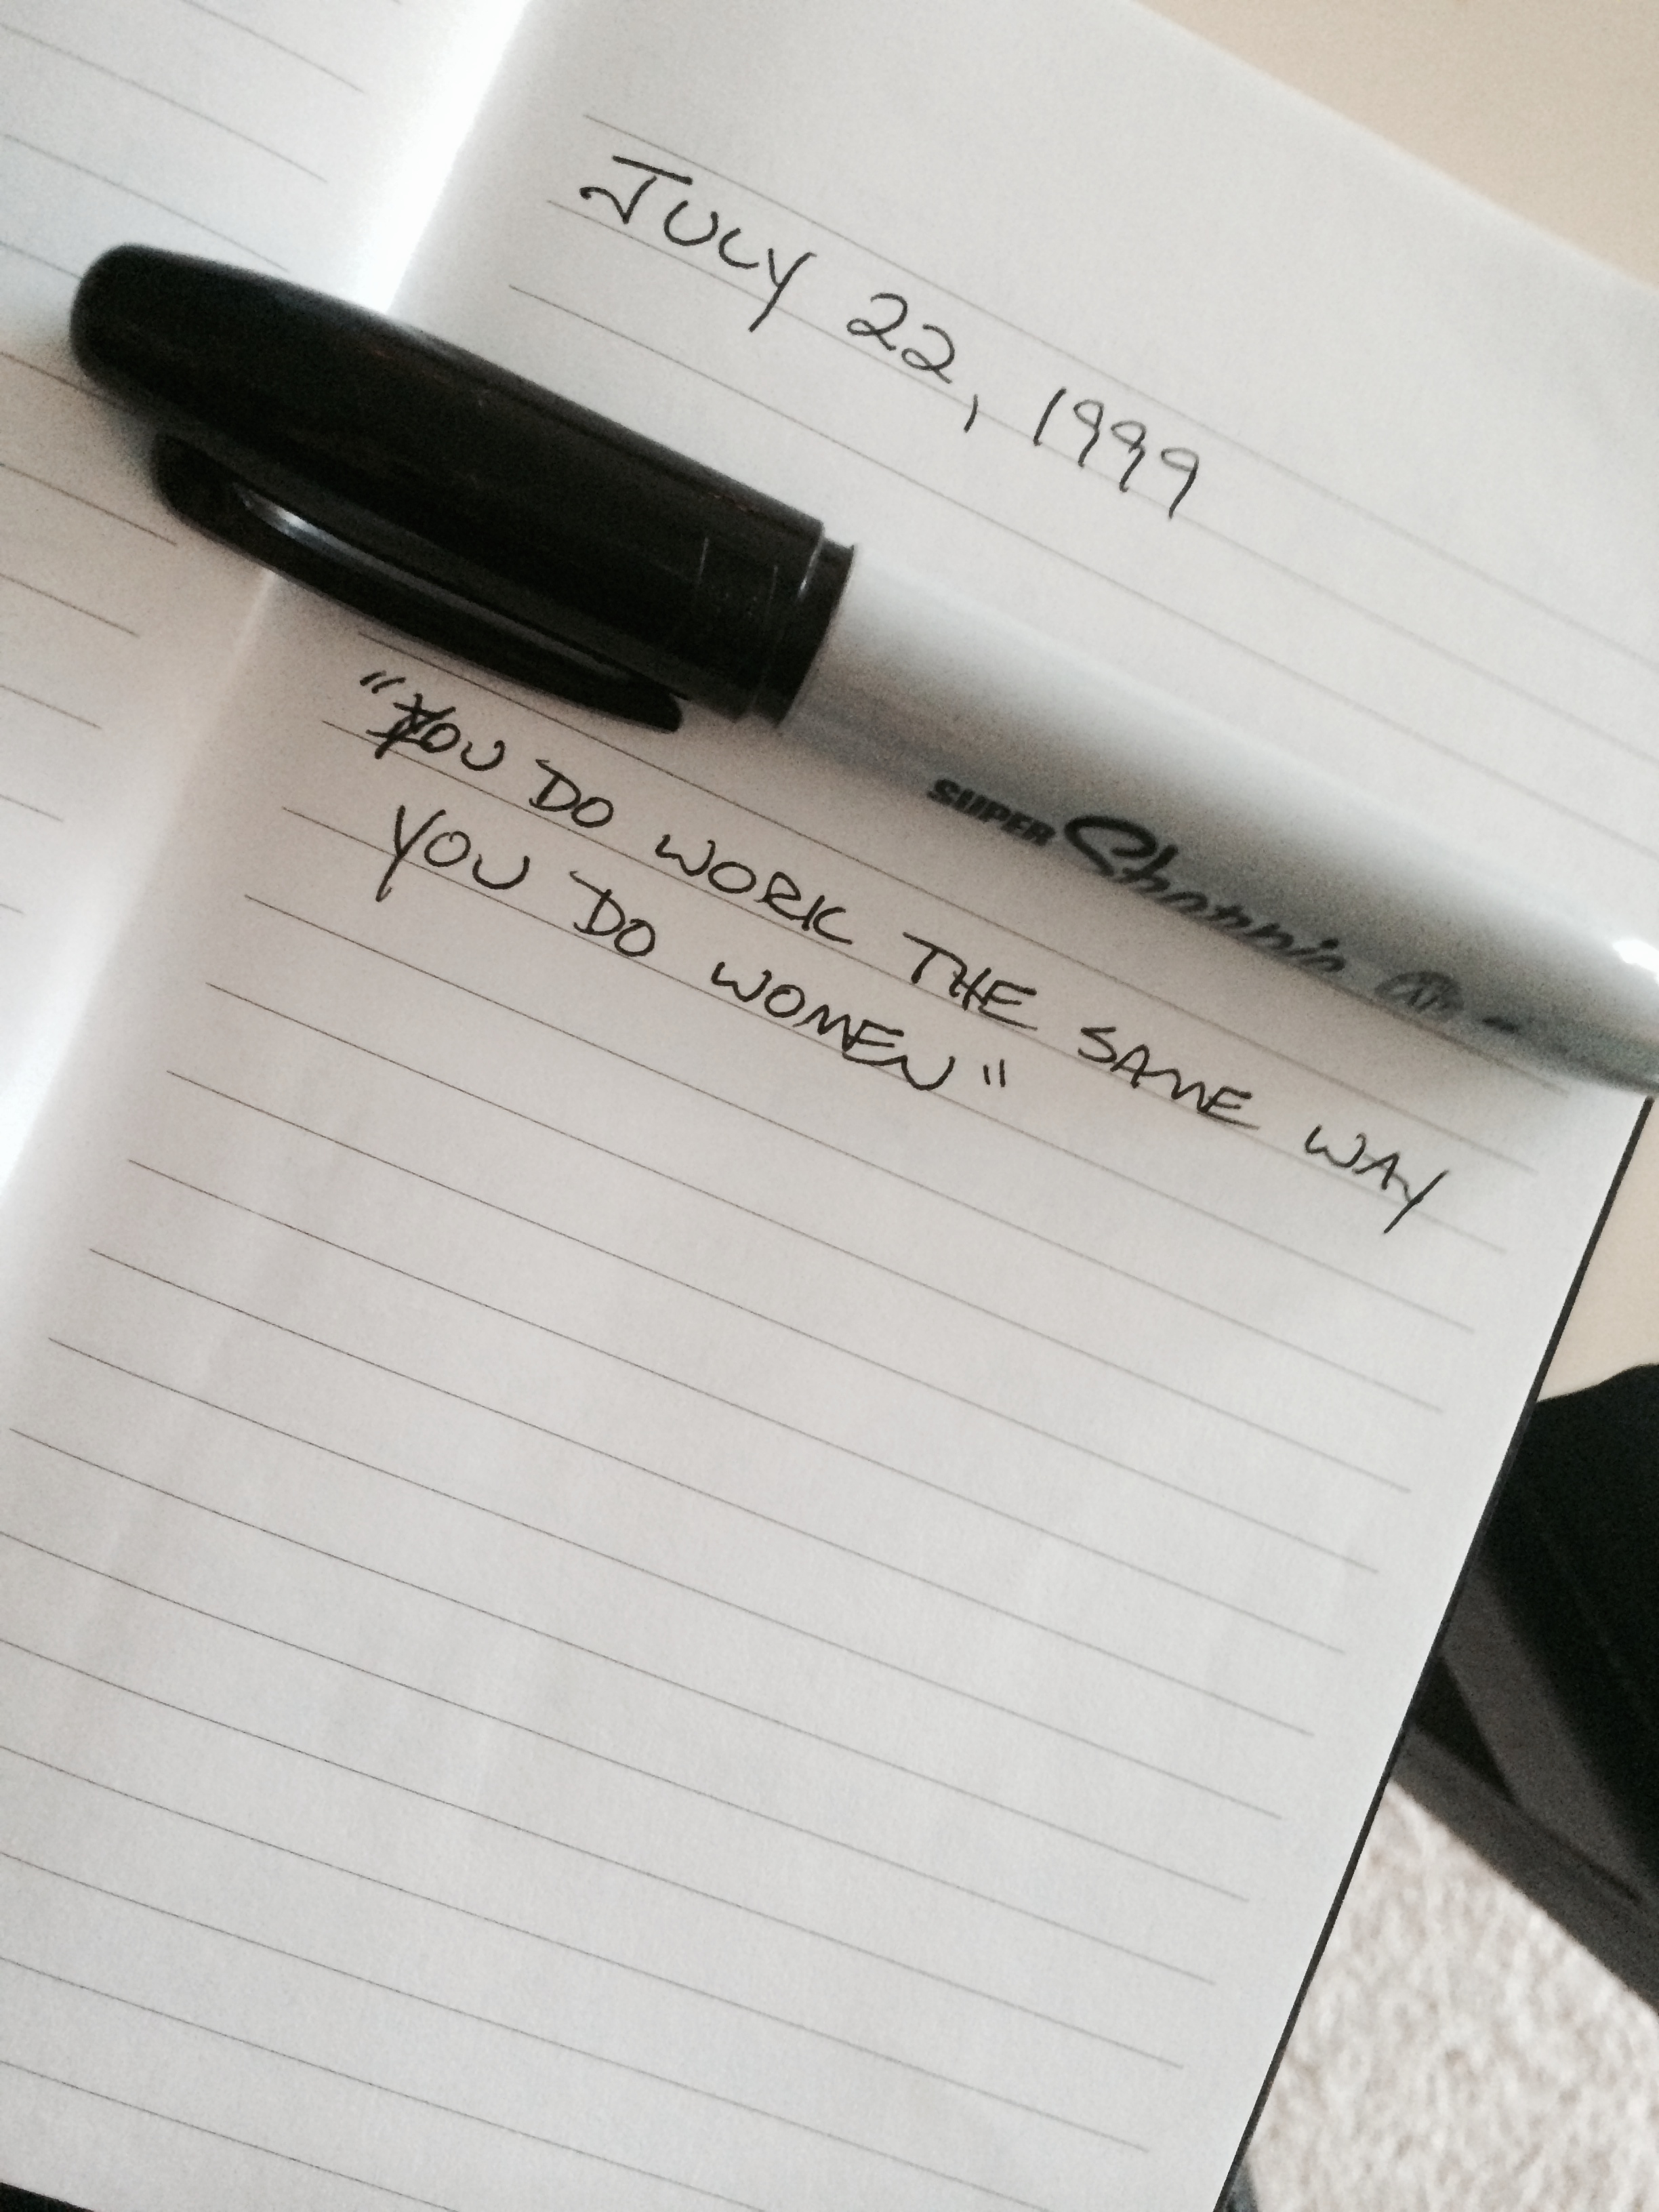 JULY 22, 1999
SUPER Sharpie
"YOU DO WORK THE SAME WAY
YOU DO WOMEN"